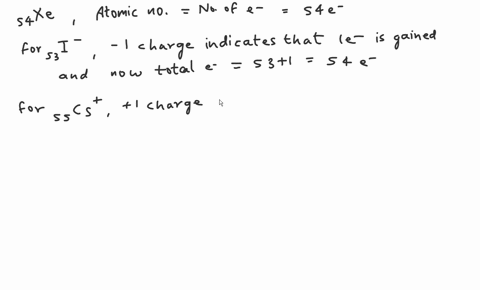 ₅₄Xe , Atomic no. = No of e- = 54e-
for ₅₃I⁻ , -1 charge indicates that 1e- is gained
and now total e- = 53+1 = 54 e-
for ₅₅Cs⁺, +1 charge